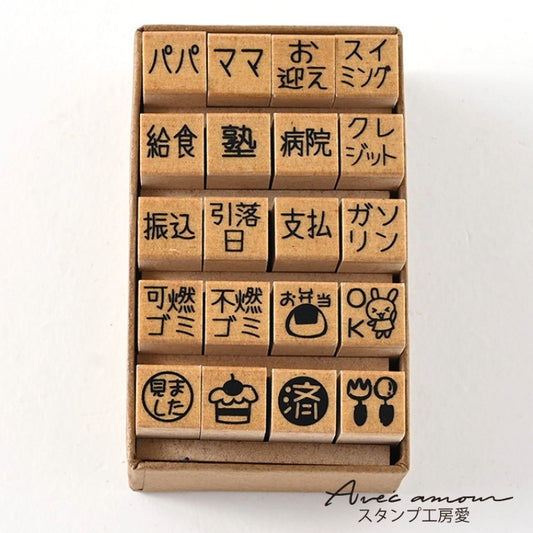 パパ
ママ
お
迎え
スイ
ミング
給食
塾
病院
クレ
ジット
振込
引落
日
支払
ガソ
リン
可燃
ゴミ
不燃
ゴミ
お弁当
OK
見ました
済
Avec amour
スタンプ工房愛